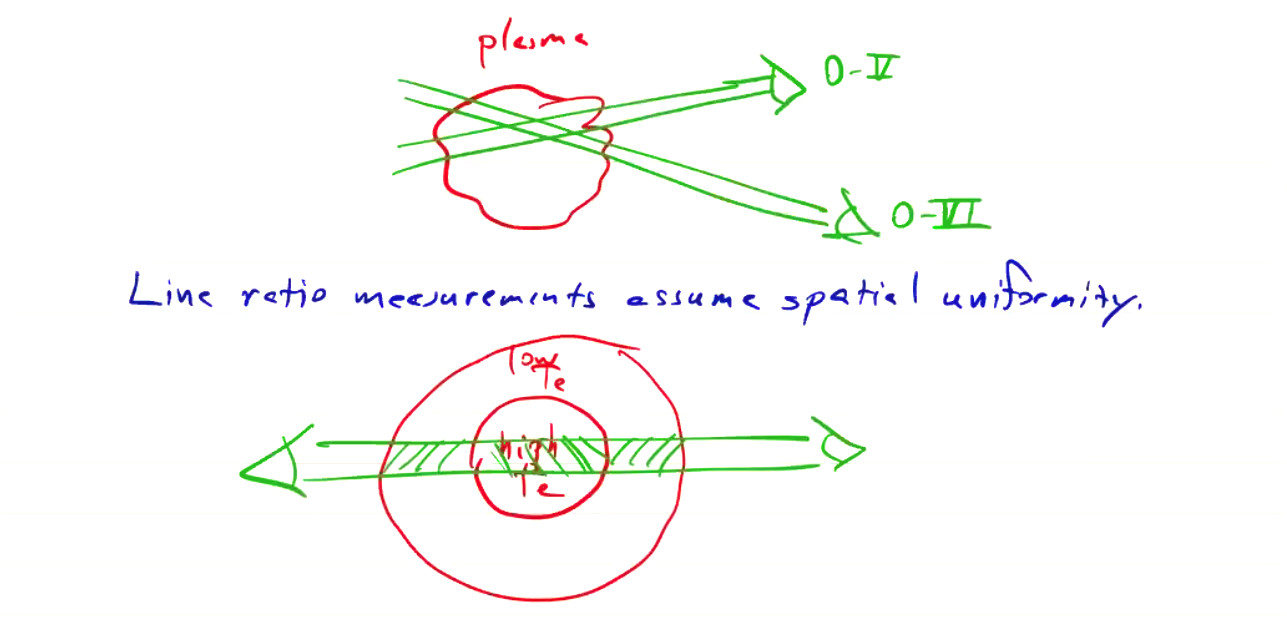 plasma
O-V
O-VI
Line ratio measurements assume spatial uniformity.
low
Te
high
Te